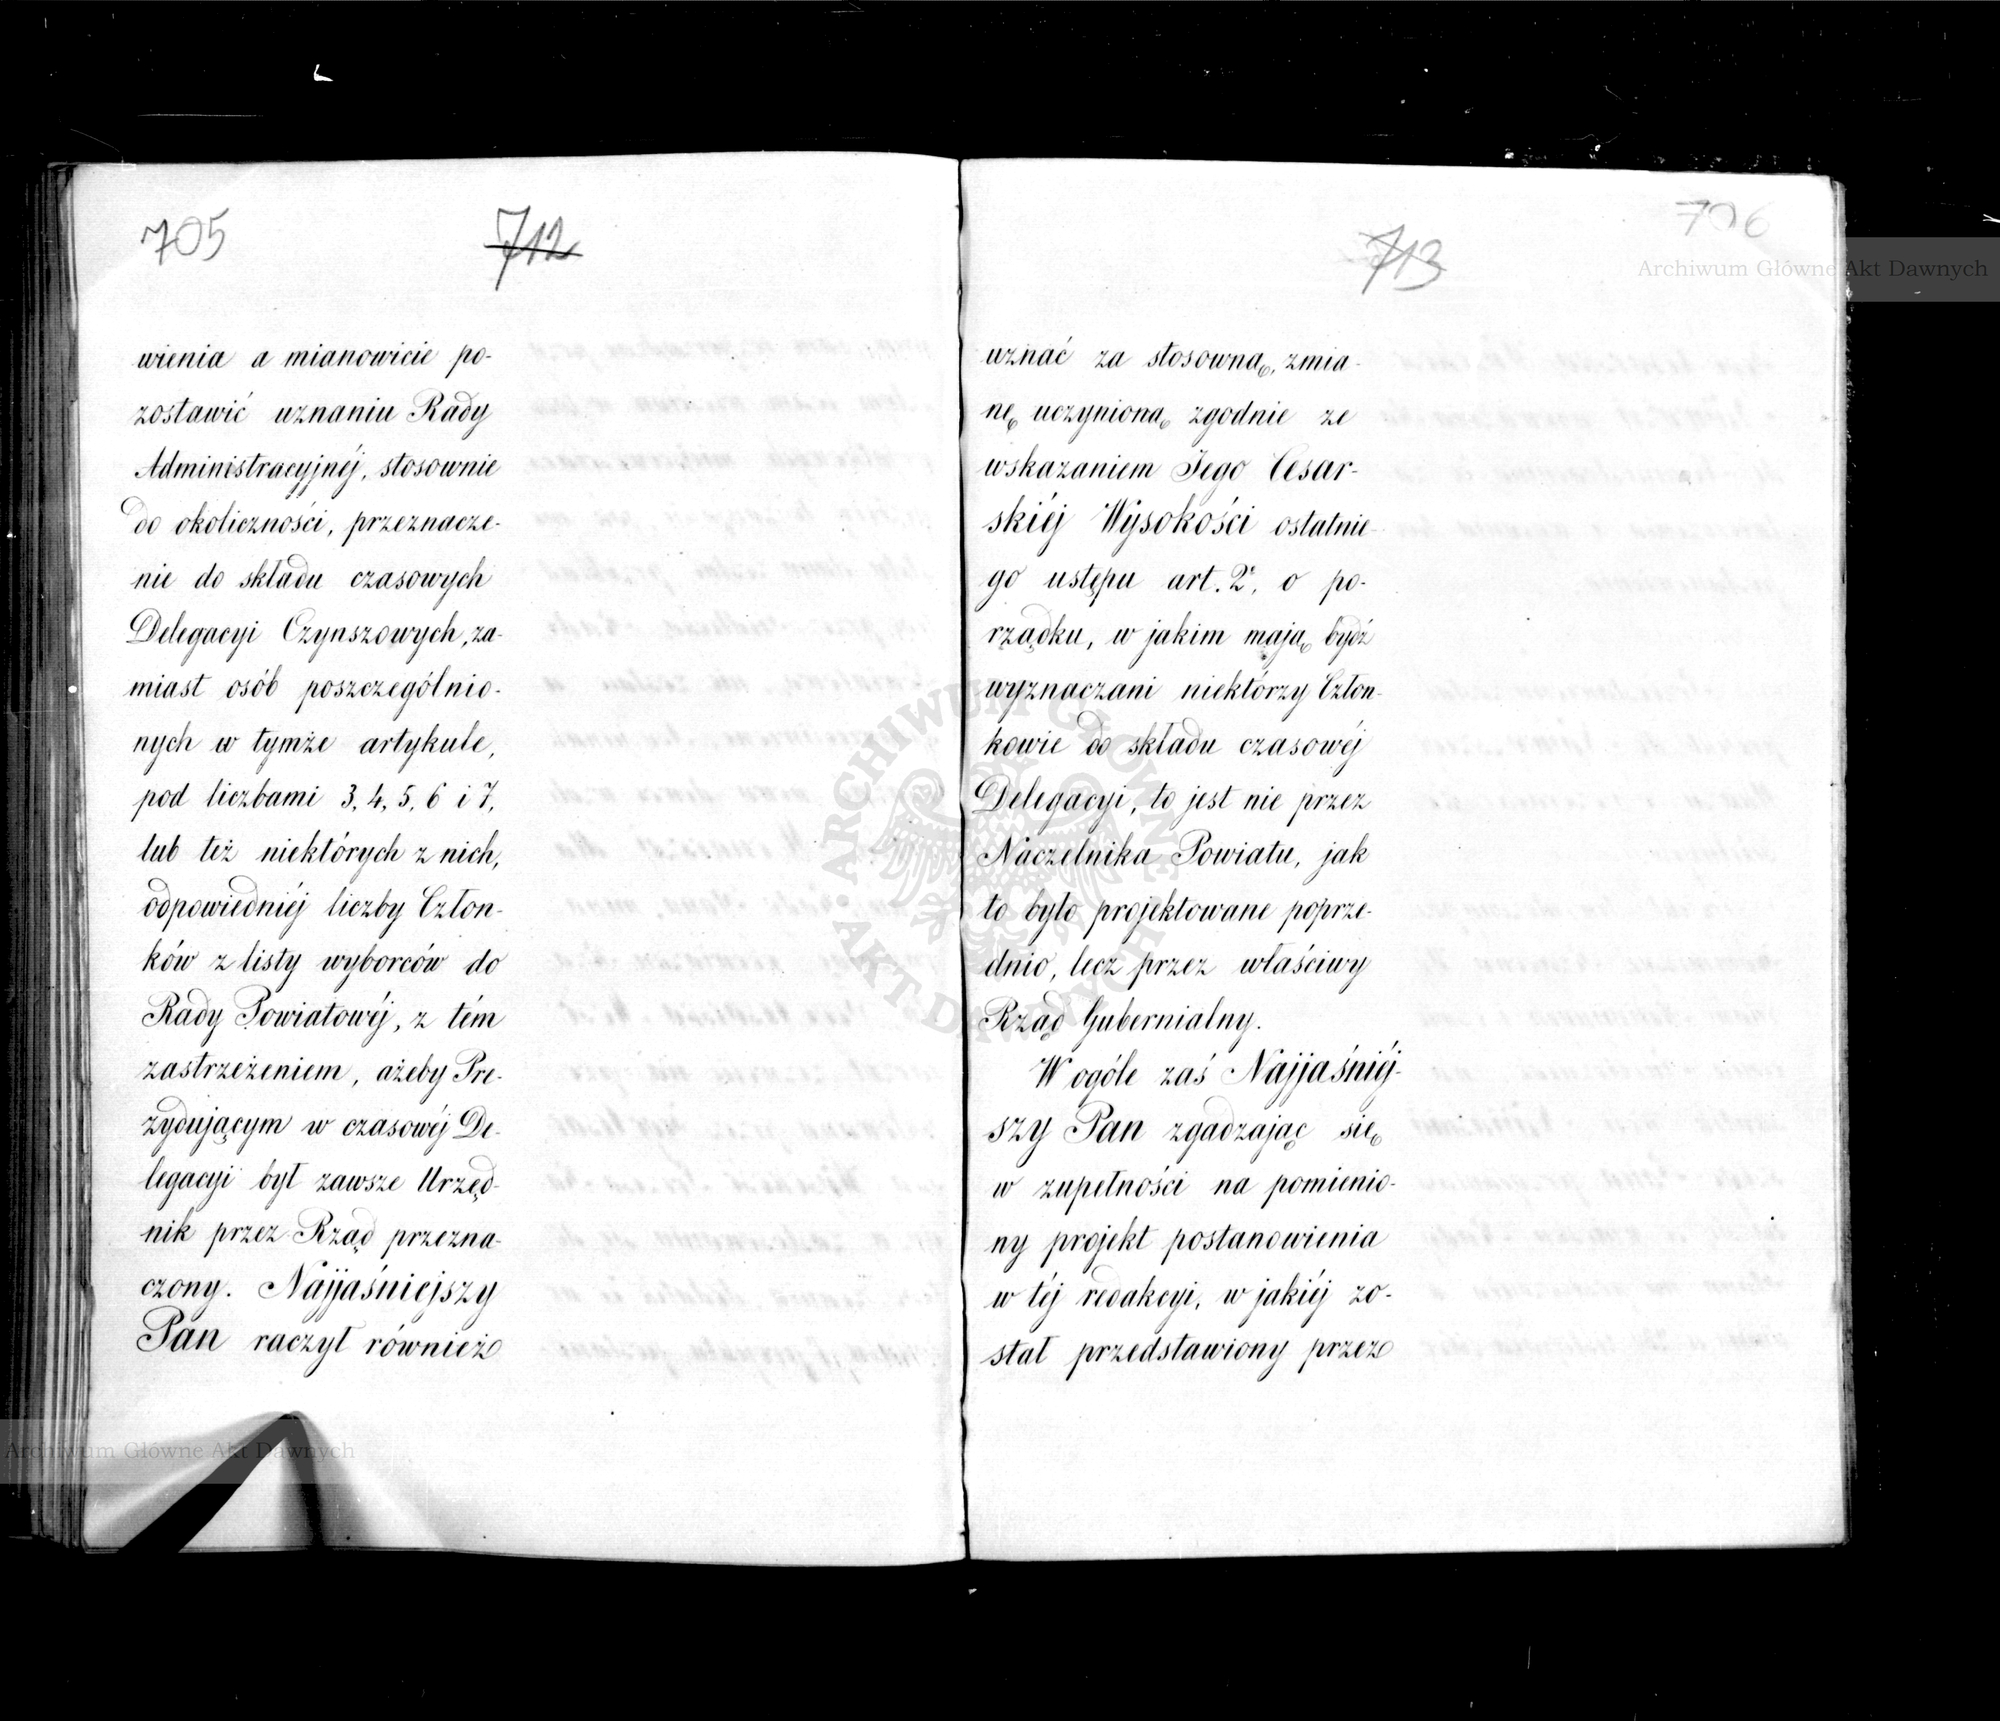 705
712
wienia a mianowicie po-
zostawić uznaniu Rady
Administracyjnéj, stosownie
do okoliczności, przeznacze-
nie do składu czasowych
Delegacyi Czynszowych, za-
miast osób poszczególnio-
nych w tymże artykule,
pod liczbami 3, 4, 5, 6 i 7,
lub też niektórych z nich,
odpowiedniéj liczby Człon-
ków z listy wyborców do
Rady Powiatowéj, z tém
zastrzeżeniem, ażeby Pre-
zydującym w czasowéj De-
legacyi był zawsze Urzęd-
nik przez Rząd przezna-
czony. Najjaśniejszy
Pan raczył również
706
713
uznać za stosowną, zmia-
nę uczynioną zgodnie ze
wskazaniem Jego Cesar-
skiéj Wysokości ostatnie-
go ustępu art. 2º, o po-
rządku, w jakim mają bydź
wyznaczani niektórzy Człon-
kowie do składu czasowéj
Delegacyi, to jest nie przez
Naczelnika Powiatu, jak
to było projektowane poprze-
dnio, lecz przez właściwy
Rząd Gubernialny.
W ogóle zaś Najjaśniéj-
szy Pan zgadzając się
w zupełności na pomienio-
ny projekt postanowienia
w téj redakcyi, w jakiéj zo-
stał przedstawiony przez
Archiwum Główne Akt Dawnych
Archiwum Główne Akt Dawnych
ARCHIWUM GŁÓWNE
AKT DAWNYCH